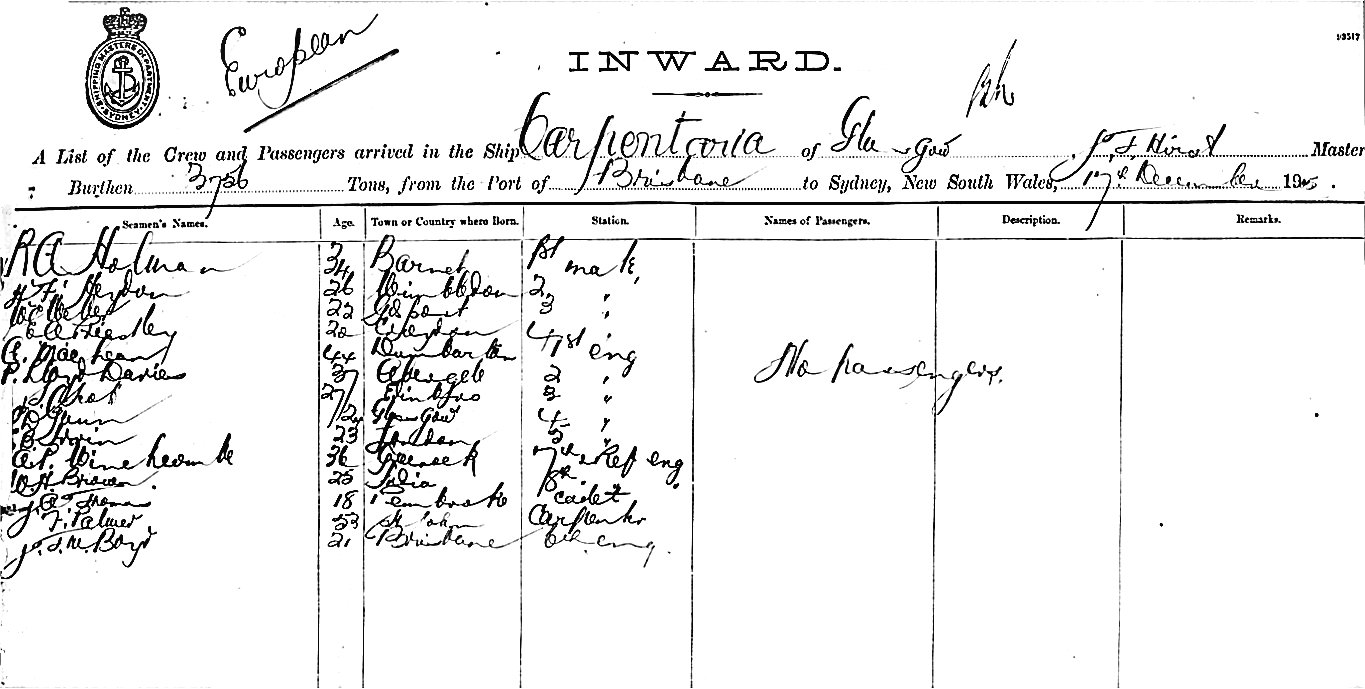 93517
SHIPPING MASTERS DEPARTMENT SYDNEY
European
INWARD.
A List of the Crew and Passengers arrived in the Ship Carpentaria of Glasgow Hirst Master
Burthen 3756 Tons, from the Port of Brisbane to Sydney, New South Wales, 17th December 19
Seamen's Names. Age. Town or Country where Born. Station. Names of Passengers. Description. Remarks.
R A Holman 34 Barnet 1st mate
Heydon 26 Wimbledon 2 "
22 Gosport 3 "
E A Beastley 20 Croydon 4
44 Dumbarton 1st eng
P. Lloyd Davies 37 Abergele 2 "
27 3 "
D Gunn Glasgow 4
B Irwin 23 London 5 "
A.P. Winchcombe 36 7th & Ref eng
W.H. Brown 25 India 8th "
18 Pembroke cadet
F. Palmer 53 St John Carpenter
J. F. W. Boyd 21 Brisbane 6th eng.
No passengers.